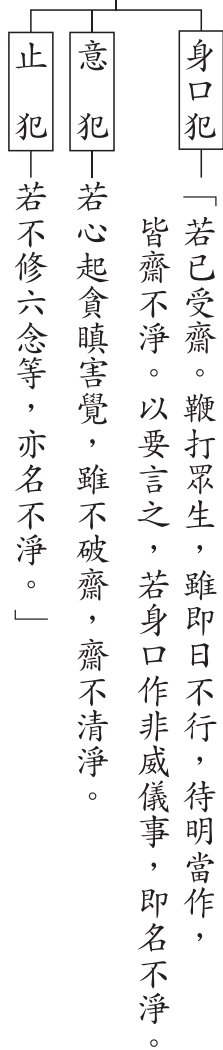 身口犯
「若已受齋。鞭打眾生，雖即日不行，待明當作，
皆齋不淨。以要言之，若身口作非威儀事，即名不淨。
意犯
若心起貪瞋害覺，雖不破齋，齋不清淨。
止犯
若不修六念等，亦名不淨。」